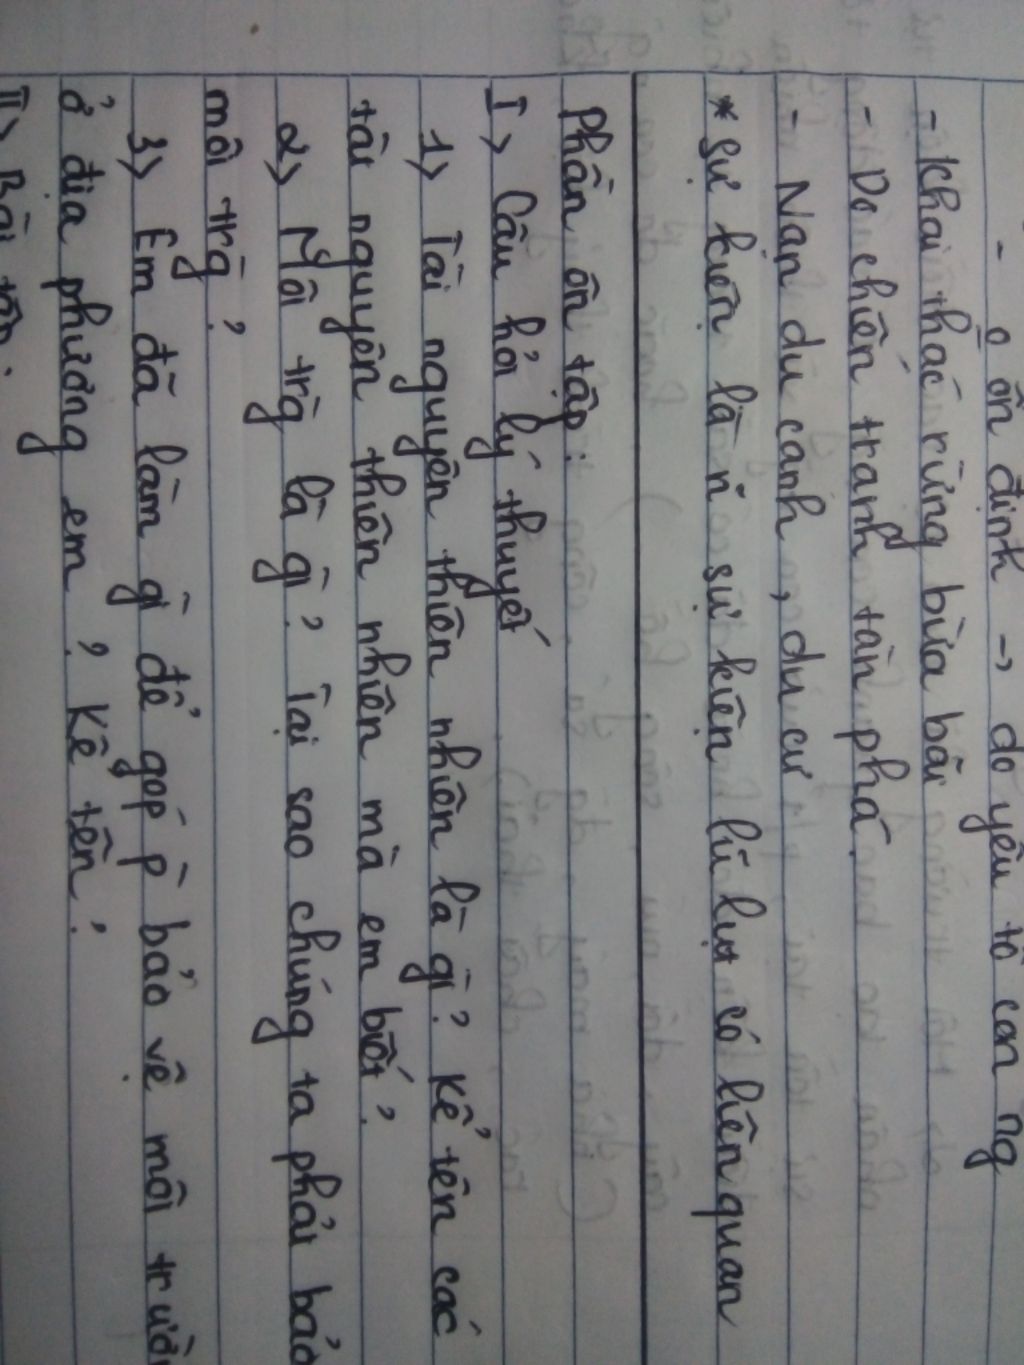 - ổ ổn định → do yếu tố con ng
- Khai thác rừng bừa bãi
- Do chiến tranh tàn phá.
- Nạn du canh, du cư
* Sự kiện là n~ sự kiện lũ lụt có liên quan
Phần ôn tập:
I> Câu hỏi lý thuyết
1> Tài nguyên thiên nhiên là gì? Kể tên các
tài nguyên thiên nhiên mà em biết?
2> Môi trg` là gì? Tại sao chúng ta phải bảo
môi trg`?
3> Em đã làm gì để góp p bảo vệ môi trườn
ở địa phương em? Kể tên?
II> Bài tập: